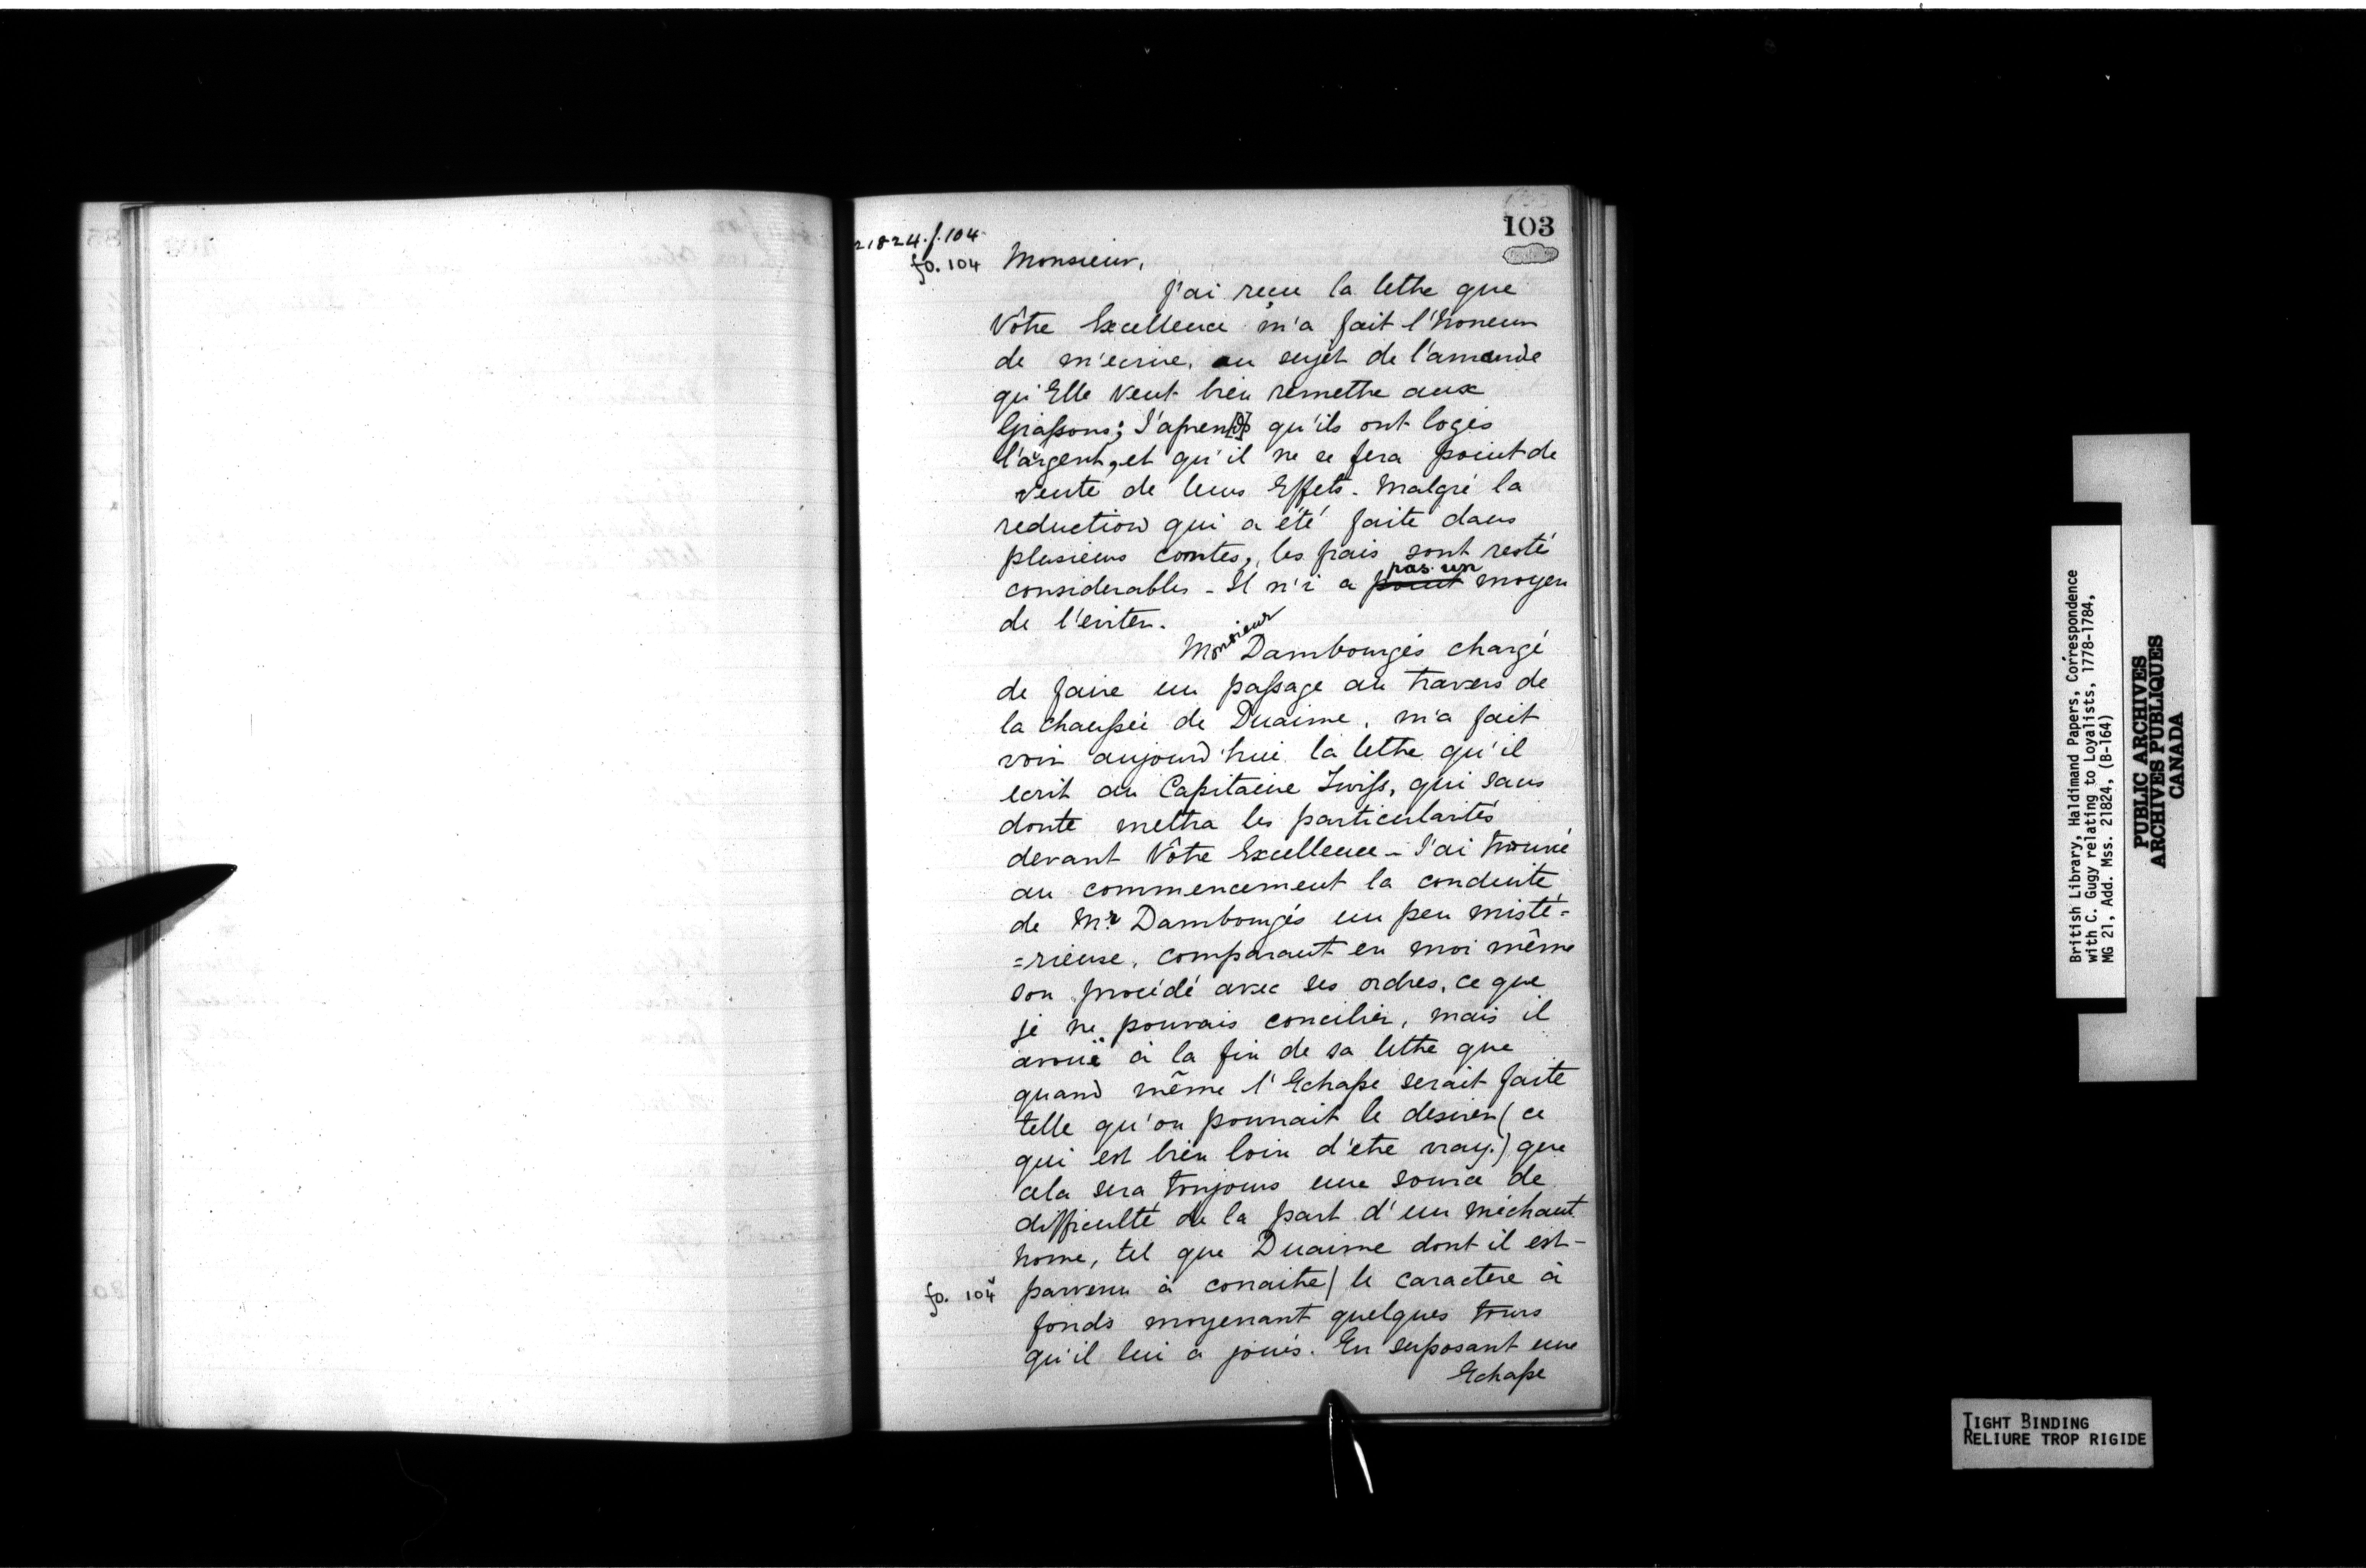 103
21824.f.104
fo. 104 Monsieur,
J'ai reçu la lettre que
Vôtre Excellence m'a fait l'honeur
de m'ecrire, au sujét de l'amende
qu'Elle veut bien remettre aux
Graſsons; J'apren[d]s qu'ils ont logés
l'argent, et qu'il ne se fera point de
vente de leurs Effets. Malgré la
reduction qui a été faite dans
plusieurs comtes, les frais sont resté
considerables - Il n'i a point pas un moyen
de l'eviter.
Monsieur Dambourgés chargé
de faire un paſsage au travers de
la chauſsée de Duaime, m'a fait
voir aujourd'hui la lettre qu'il
ecrit au Capitaine Twiſs, qui sans
doute mettra les particularités
devant Vôtre Excellence - J'ai trouvé
au commencement la conduite
de Mr. Dambourgés un peu misté=
=rieuse, comparant en moi même
son procédé avec ses ordres, ce que
je ne pouvais concilier, mais il
avouë à la fin de sa lettre que
quand même l'Echaſse serait faite
telle qu'on pourrait le desirer (ce
qui est bien loin d'etre vray.) que
cela sera toujours une source de
difficulté de la part d'un méchant
home, tel que Duaime dont il est-
fo. 104v parvenu à conaitre/ le caractere à
fonds moyenant quelques tours
qu'il lui a joués. En suposant une
Echaſse
British Library, Haldimand Papers, Correspondence
with C. Gugy relating to Loyalists, 1778-1784,
MG 21, Add. Mss. 21824, (B-164)
PUBLIC ARCHIVES
ARCHIVES PUBLIQUES
CANADA
TIGHT BINDING
RELIURE TROP RIGIDE